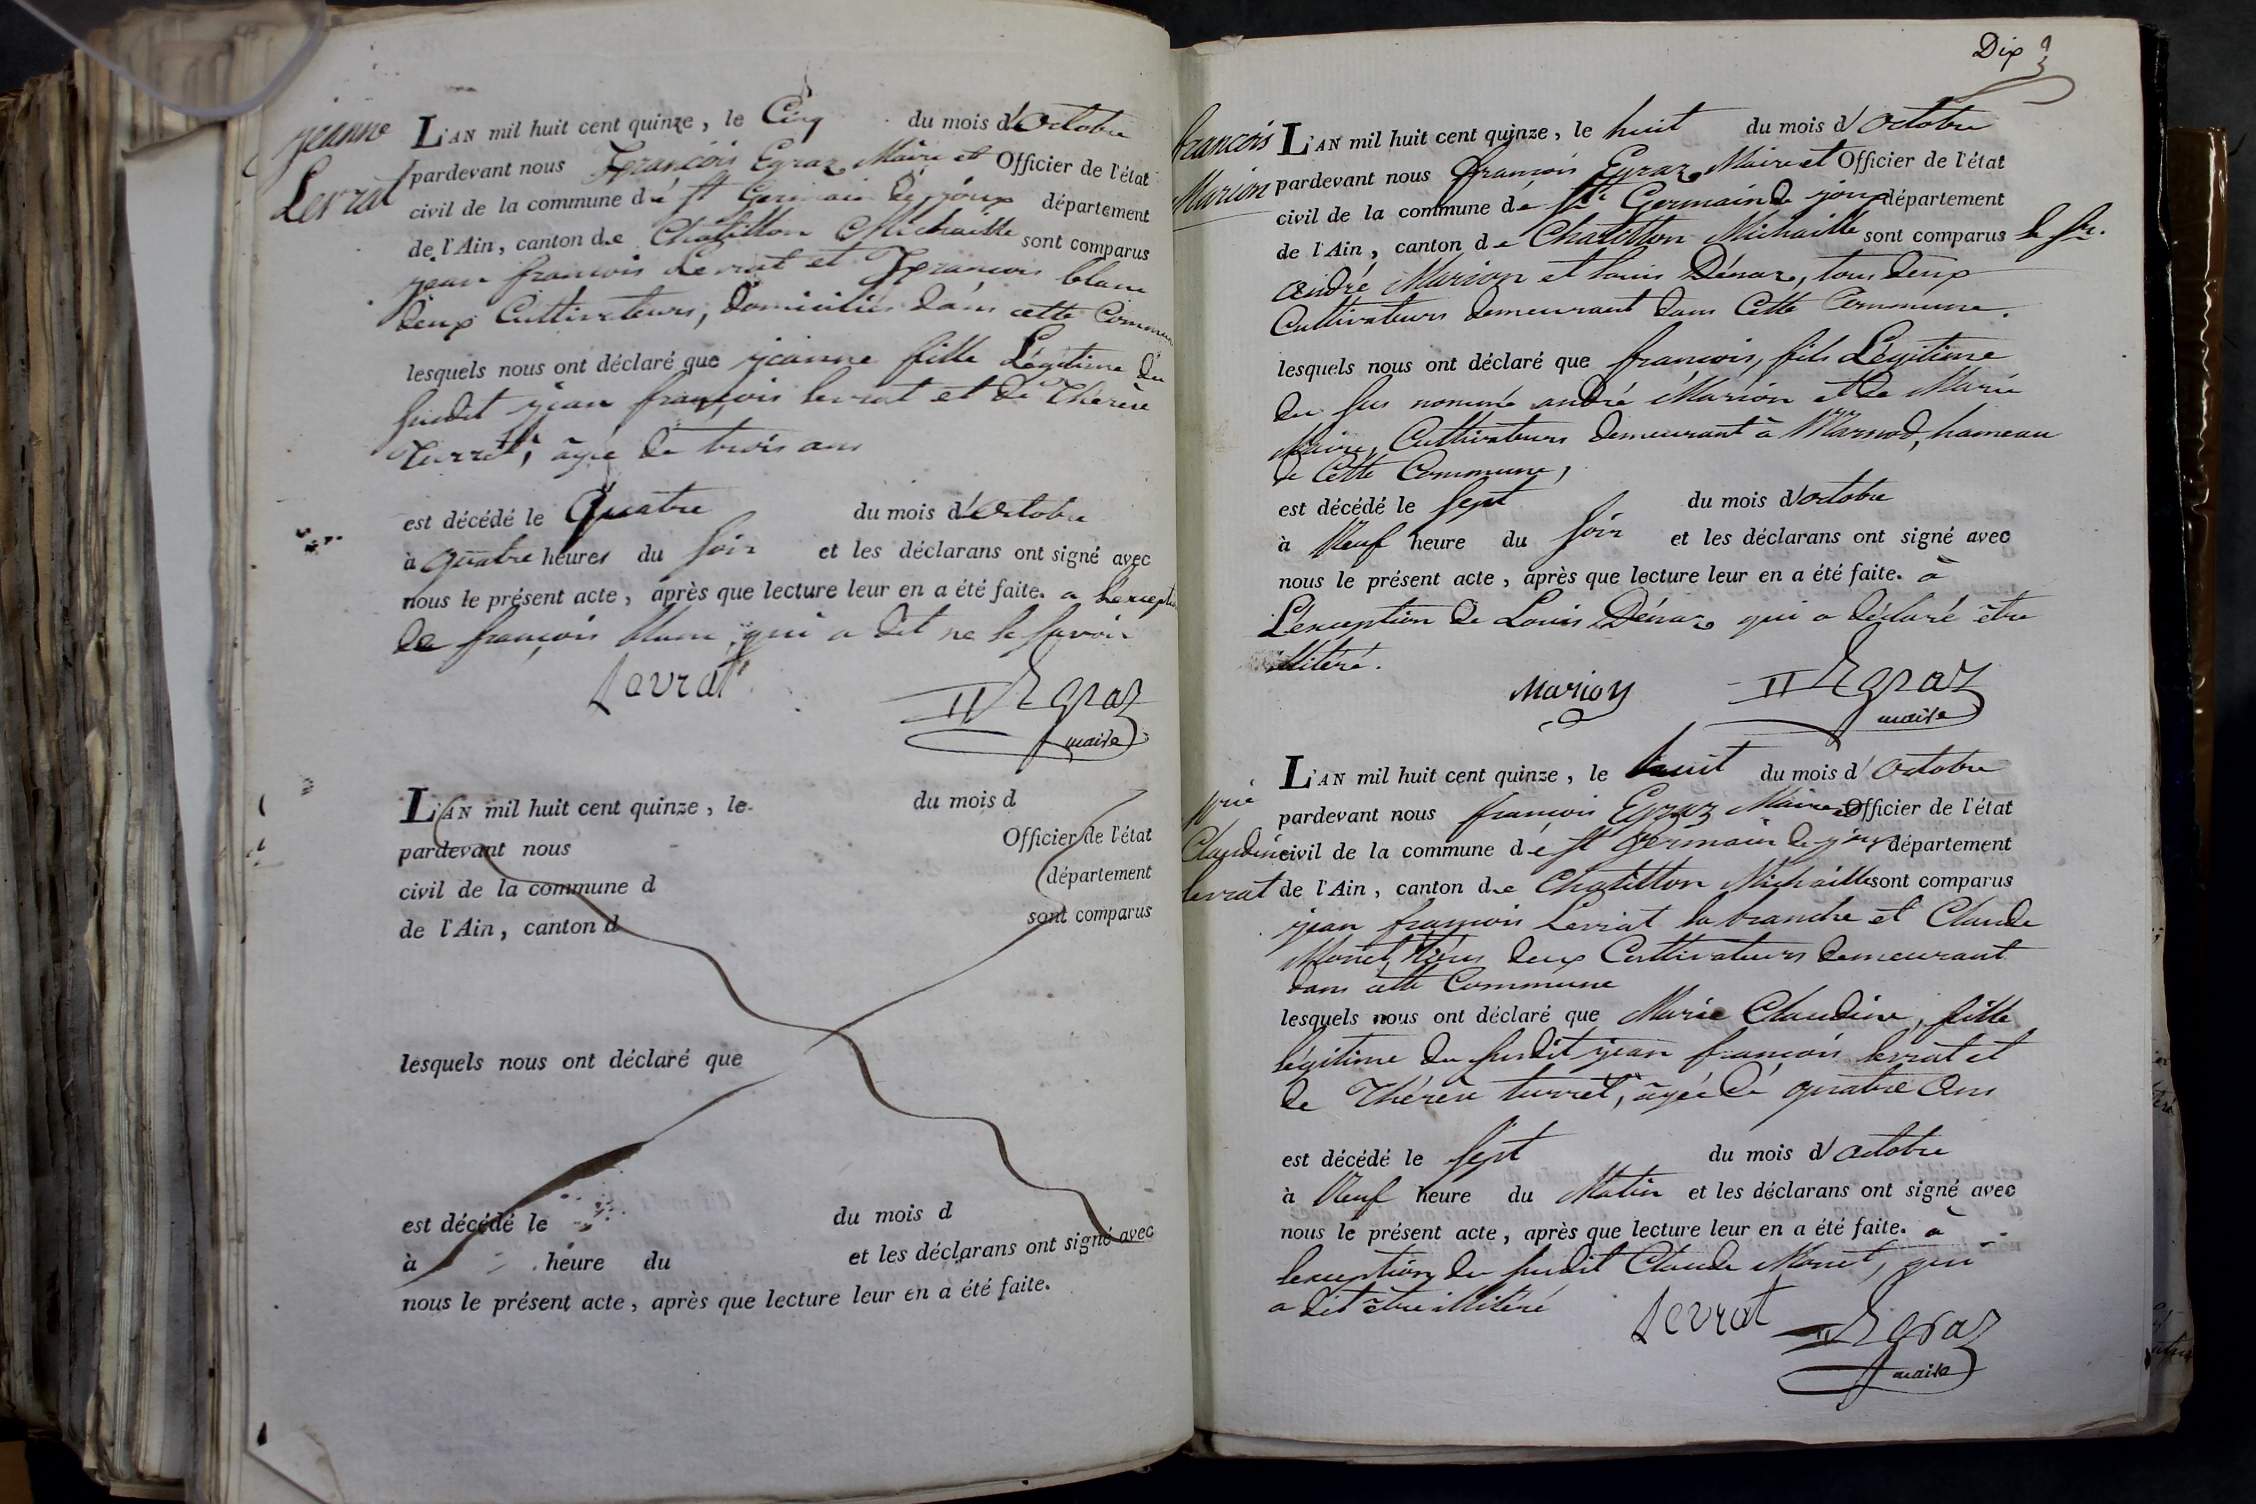 jeanne
Levrat
L'AN mil huit cent quinze, le Cinq du mois d'Octobre
pardevant nous François Egraz Maire et Officier de l'état
civil de la commune de st Germain de joux département
de l'Ain, canton de Chatillon Michaille sont comparus
jean françois Levrat et François blanc
deux Cultivateurs, domiciliés dans cette Commune
lesquels nous ont déclaré que jeanne fille Légitime du
susdit jean françois levrat et de Thérèse
Turrel, agée de trois ans
est décédé le Quatre du mois d'octobre
à quatre heures du soir et les déclarans ont signé avec
nous le présent acte, après que lecture leur en a été faite. a Lexception
de françois blanc, qui a dit ne le savoir
Levrat
Egraz
maire
L'AN mil huit cent quinze, le du mois d
pardevant nous Officier de l'état
civil de la commune d département
de l'Ain, canton d sont comparus
lesquels nous ont déclaré que
est décédé le du mois d
à heure du et les déclarans ont signé avec
nous le présent acte, après que lecture leur en a été faite.
Dix
françois
Marion
L'AN mil huit cent quinze, le huit du mois d'octobre
pardevant nous françois Egraz Maire et Officier de l'état
civil de la commune de st Germain de joux département
de l'Ain, canton de Chatillon Michaille sont comparus le Sr.
andré Marion et louis Dénaz, tous deux
Cultivateurs demeurant dans Cette Commune.
lesquels nous ont déclaré que françois, fils Légitime
du sus nommé andré Marion et de Marie
Maire, Cultivateurs demeurant à Marnod, hameau
de Cette Commune,
est décédé le sept du mois d'octobre
à Neuf heure du soir et les déclarans ont signé avec
nous le présent acte, après que lecture leur en a été faite. à
L'exception de Louis Dénaz qui a déclaré être
illitéré.
Marion
Egraz
maire
Claudine
levrat
L'AN mil huit cent quinze, le huit du mois d'octobre
pardevant nous françois Egraz Maire et Officier de l'état
civil de la commune de st Germain de joux département
de l'Ain, canton de Chatillon Michaille sont comparus
jean françois Levrat la branche et Claude
Monet, tous deux Cultivateurs demeurant
dans cette Commune
lesquels nous ont déclaré que Marie Claudine, fille
légitime du susdit jean françois levrat et
de Thérèse turrel, agée de quatre ans
est décédé le sept du mois d'octobre
à Neuf heure du Matin et les déclarans ont signé avec
nous le présent acte, après que lecture leur en a été faite. à
lexception du susdit Claude Monet, qui
a dit être illitéré
Levrat
Egraz
maire